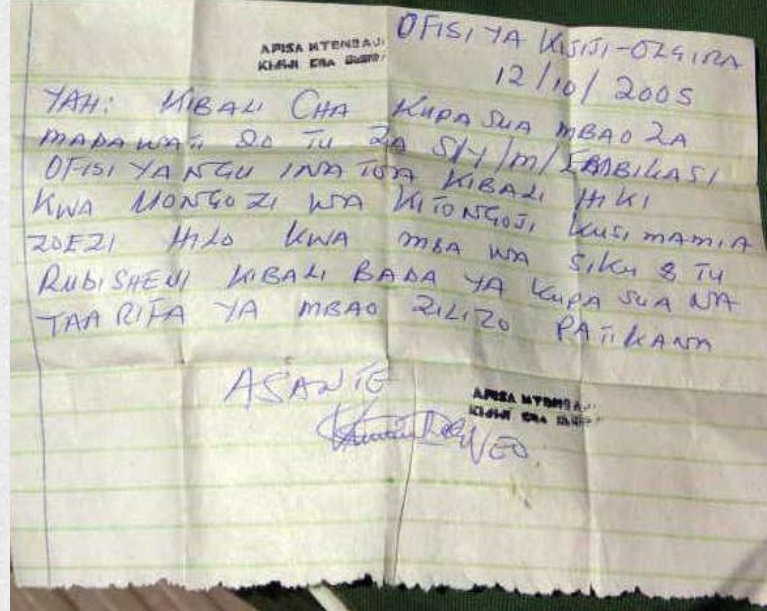 OFISI YA KIJIJI-OLGIRA
AFISA MTENDAJI
KIJIJI CHA
12/10/2005
YAH: KIBALI CHA KUPASUA MBAO ZA
MADAWATI 20 TU ZA S/Y/M/
OFISI YANGU INATOA KIBALI HIKI
KWA MONGOZI WA KITONGOJI KUSIMAMIA
ZOEZI HILO KWA MDA WA SIKU 8 TU
RUDISHENI KIBALI BADA YA KUPASUA NA
TAARIFA YA MBAO ZILIZO PATIKANA
ASANTE
AFISA MTENDAJI
KIJIJI CHA
VEO